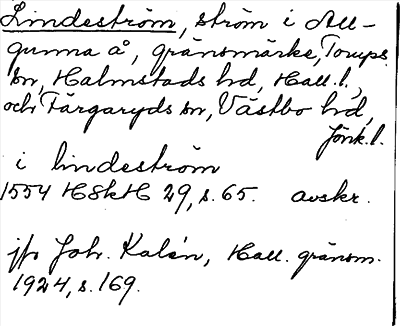 Lindeström, ström i All-
gunna å, gränsmärke, Torups
sn, Halmstads hd, Hall. l.,
och Färgaryds sn, Västbo hd,
Jönk. l.
i lindeström
1554 HSkH 29, s. 65. avskr.
jfr Joh. Kalén, Hall. gränsm.
1924, s. 169.